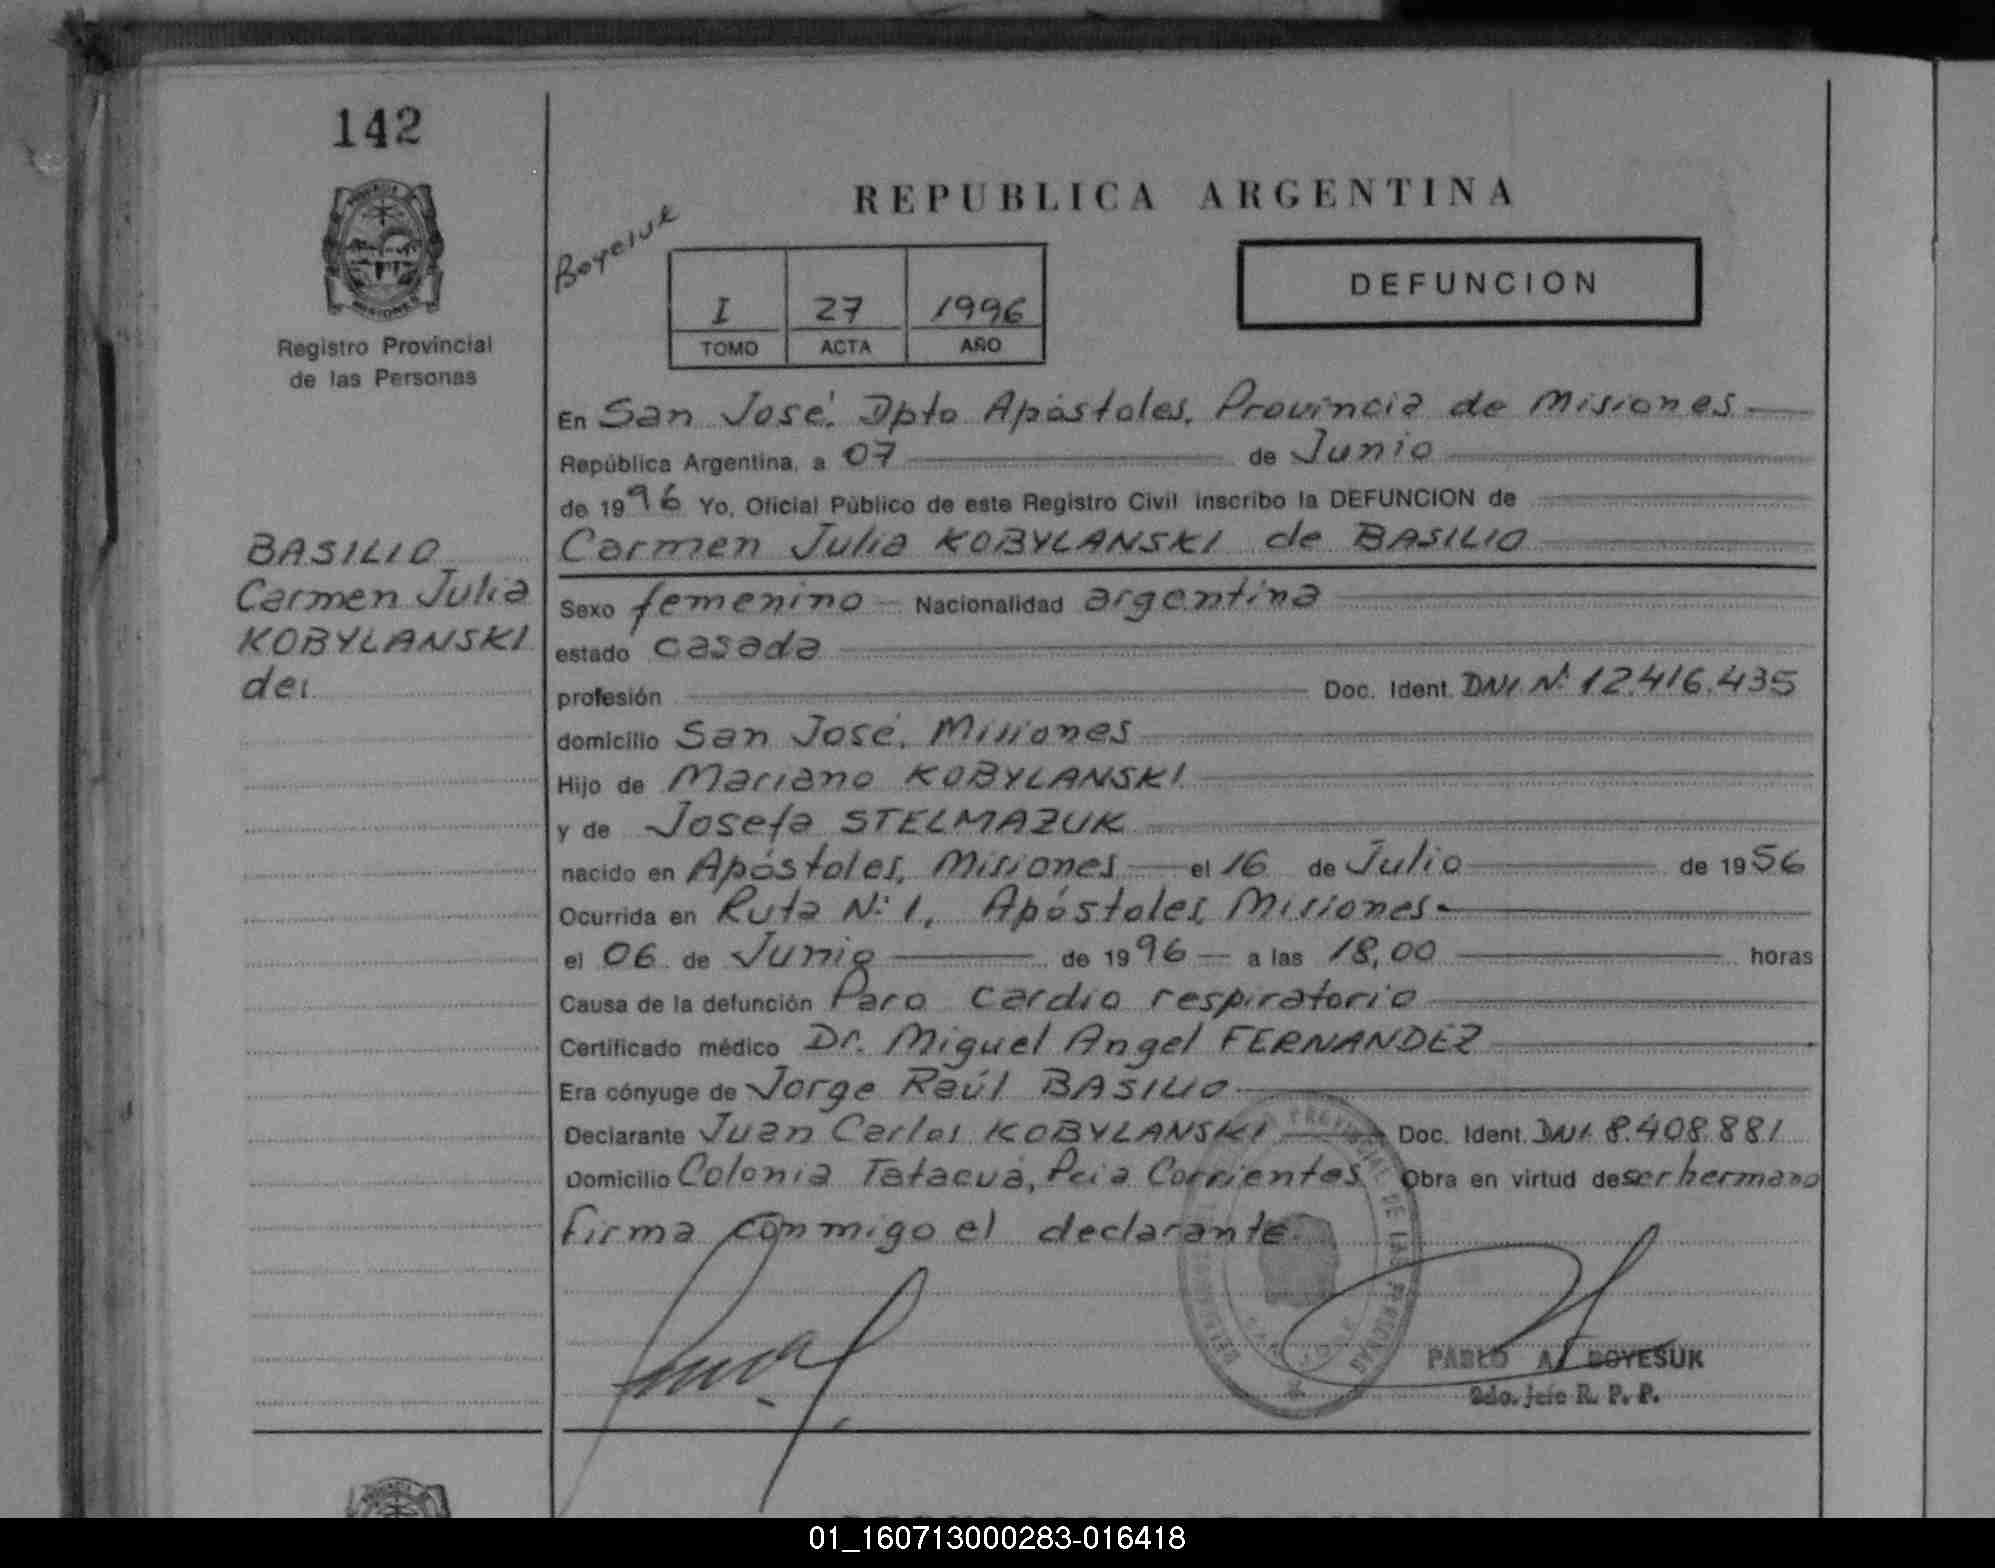 142
REPUBLICA ARGENTINA
MISIONES
Registro Provincial
de las Personas
I 27 1996
TOMO ACTA AÑO
DEFUNCION
BASILIO
Carmen Julia
KOBYLANSKI
de:
En San José. Dpto Apóstoles. Provincia de Misiones
República Argentina, a 07 de Junio
de 1996 Yo, Oficial Público de este Registro Civil inscribo la DEFUNCION de
Carmen Julia KOBYLANSKI de BASILIO
Sexo femenino Nacionalidad argentina
estado casada
profesión Doc. Ident. DNI. Nº 12.416.435
domicilio San José. Misiones
Hijo de Mariano KOBYLANSKI
y de Josefa STELMAZUK
nacido en Apóstoles, Misiones el 16 de Julio de 1956
Ocurrida en Ruta Nº 1, Apóstoles, Misiones
el 06 de Junio de 1996 a las 18,00 horas
Causa de la defunción Paro cardio respiratorio
Certificado médico Dr. Miguel Angel FERNANDEZ
Era cónyuge de Jorge Raúl BASILIO
Declarante Juan Carlos KOBYLANSKI Doc. Ident. DNI. 8.408.881
Domicilio Colonia Tatacuá, Pcia Corrientes Obra en virtud de ser hermano
firma conmigo el declarante.
PABLO A. BOYESUK
2do. jefe R. P. P.
01_160713000283-016418